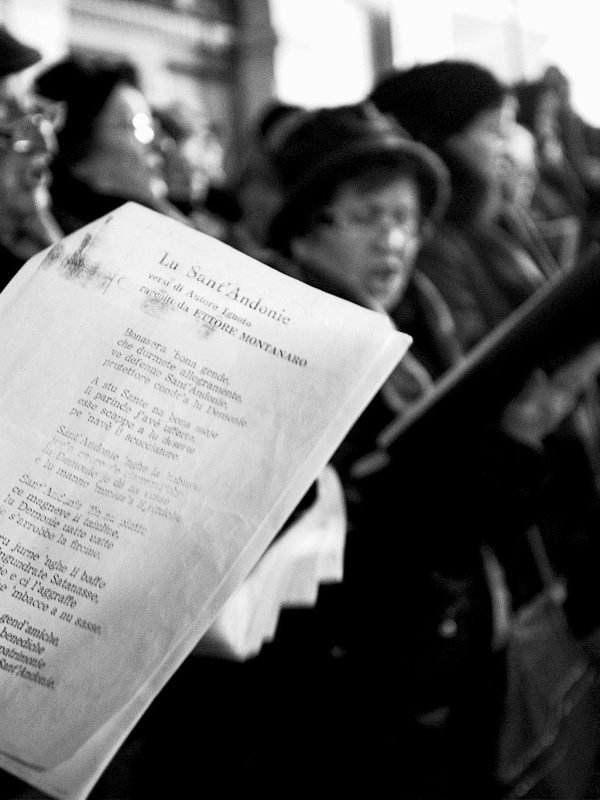 Lu Sant'Andonie
versi di Autore Ignoto
raccolti da ETTORE MONTANARO
Bonaseru 'bona gende,
che durmete allegramente,
ve defenne Sant'Andonie,
prutettore cundr'a lu Demonie.
A stu Sante na bona moje
li parinde j'avè offerte,
esse scappe a lu deserte
pe' n'avè li scucciature.
Sant'Andonie 'nghe la
lu Demonie je dà na
e lu manne
Sant'Andonie
ce magneve li taljuline,
lu Demonie
je s'arrobbe la furcine
jurne 'nghe li baffe
Satanasse,
e ci l'aggraffe
'mbacce a nu sasse.
gend'amiche,
benediche
patrimonie
Sant'Andonie.